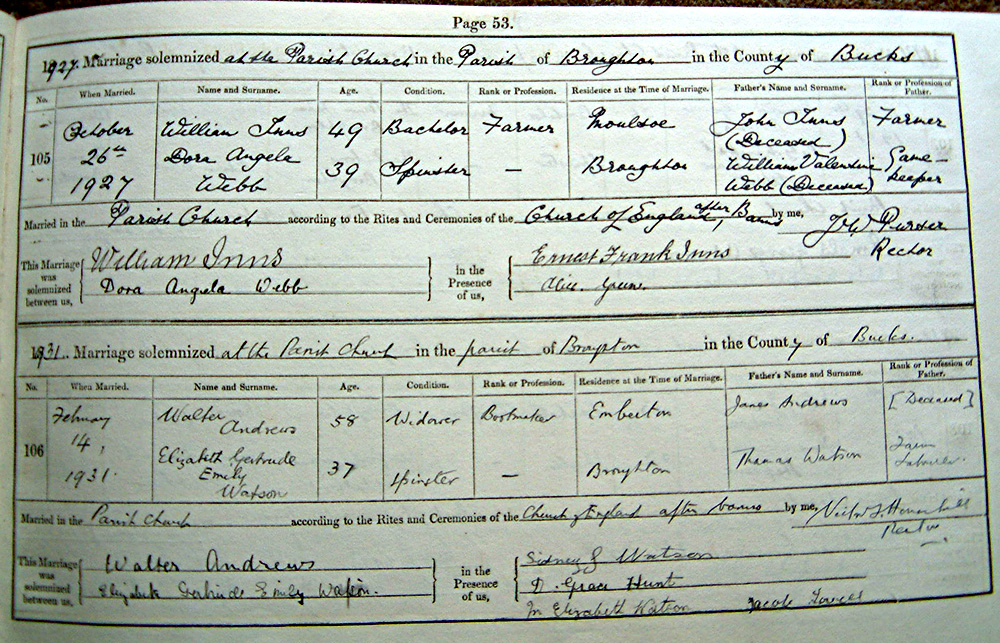 Page 53.
1927. Marriage solemnized at the Parish Church in the Parish of Broughton in the County of Bucks
No. When Married. Name and Surname. Age. Condition. Rank or Profession. Residence at the Time of Marriage. Father's Name and Surname. Rank or Profession of Father.
105
October 26th 1927
William Inns 49 Bachelor Farmer Moulsoe John Inns (Deceased) Farmer
Dora Angela Webb 39 Spinster — Broughton William Valentine Webb (Deceased) Game-keeper
Married in the Parish Church according to the Rites and Ceremonies of the Church of England after Banns by me,
Rector
This Marriage was solemnized between us,
William Inns
Dora Angela Webb
in the Presence of us,
Ernest Frank Inns
1931. Marriage solemnized at the Parish Church in the parish of Broughton in the County of Bucks.
No. When Married. Name and Surname. Age. Condition. Rank or Profession. Residence at the Time of Marriage. Father's Name and Surname. Rank or Profession of Father.
106
February 14, 1931.
Walter Andrews 58 Widower Bootmaker Emberton James Andrews [Deceased]
Elizabeth Gertrude Emily Watson 37 Spinster — Broughton Thomas Watson Farm Labourer.
Married in the Parish Church according to the Rites and Ceremonies of the Church of England after banns by me,
Rector
This Marriage was solemnized between us,
Walter Andrews
Elizabeth Gertrude Emily Watson.
in the Presence of us,
Sidney J Watson
D. Grace Hunt
Elizabeth Watson Jacob